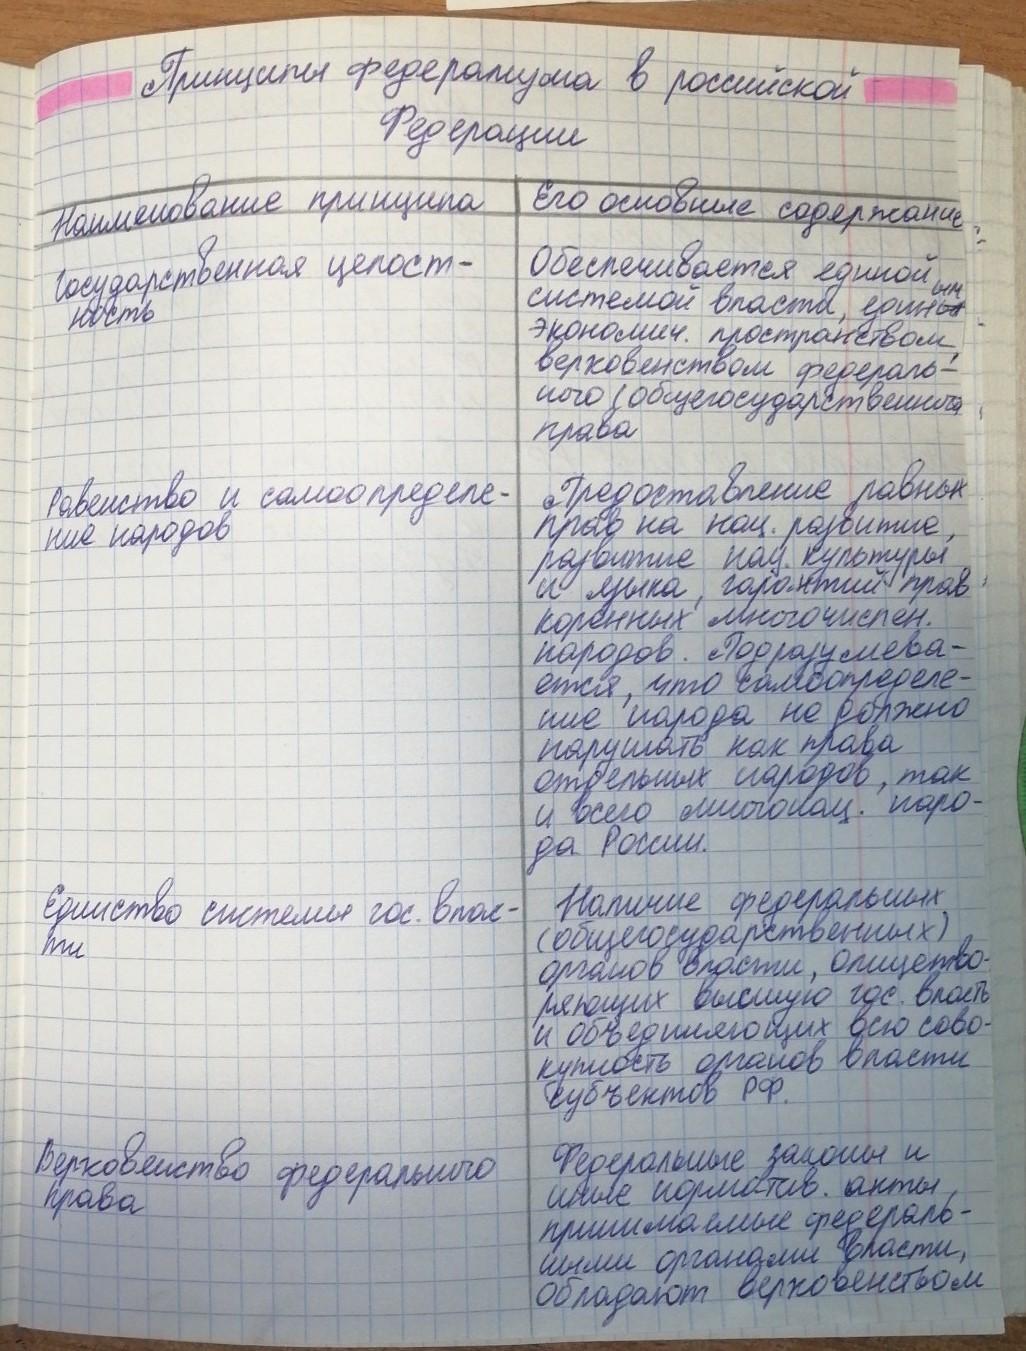 Принципы федерализма в российской
Федерации
Наименование принципа
Его основные содержание
Государственная целост-
ность
Обеспечивается единой
системой власти, единым
экономич. пространством,
верховенством федераль-
ного (общегосударственного
права
Равенство и самоопределе-
ние народов
Предоставление равных
прав на нац. развитие,
развитие нац. культуры
и языка, гарантий прав
коренных многочислен.
народов. Подразумева-
ется, что самоопределе-
ние народа не должно
нарушать как права
отдельных народов, так
и всего многонац. наро-
да России.
Единство системы гос. влас-
ти
Наличие федеральных
(общегосударственных)
органов власти, олицетво-
ряющих высшую гос. власть
и объединяющих всю сово-
купность органов власти
субъектов РФ.
Верховенство федерального
права
Федеральные законы и
иные норматив. акты,
принимаемые федераль-
ными органами власти,
обладают верховенством